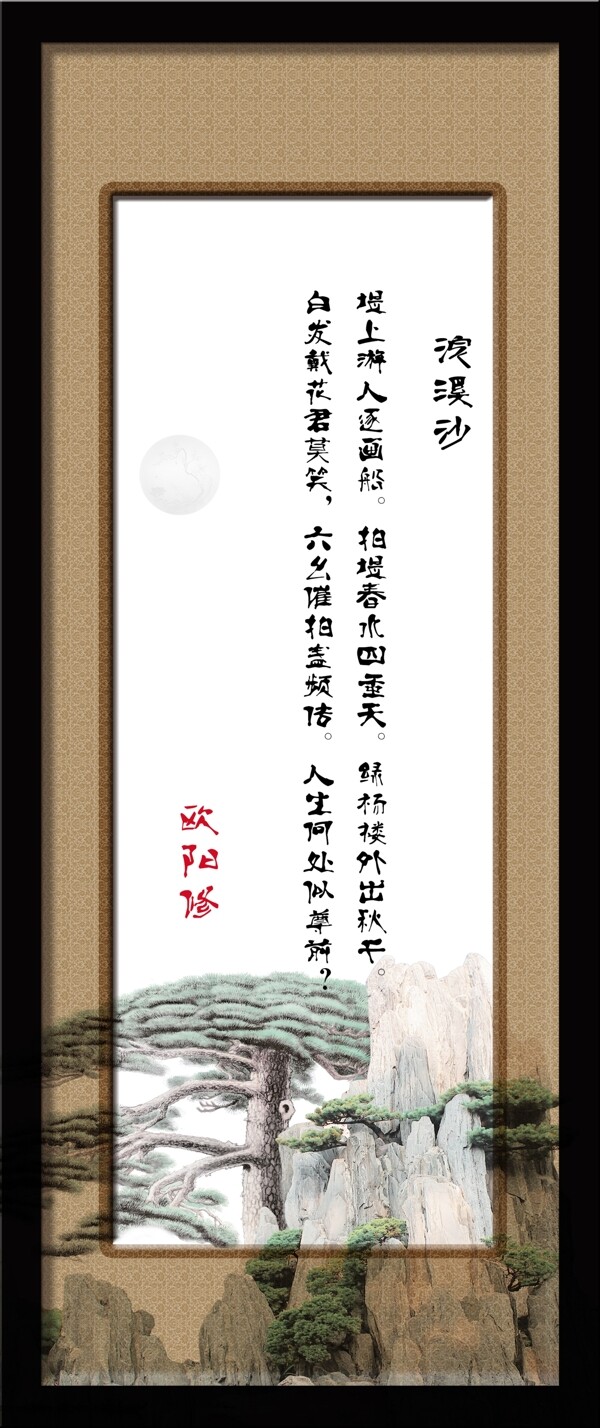 浣溪沙
堤上游人逐画船。拍堤春水四垂天。绿杨楼外出秋千。
白发戴花君莫笑，六幺催拍盏频传。人生何处似尊前？
欧阳修